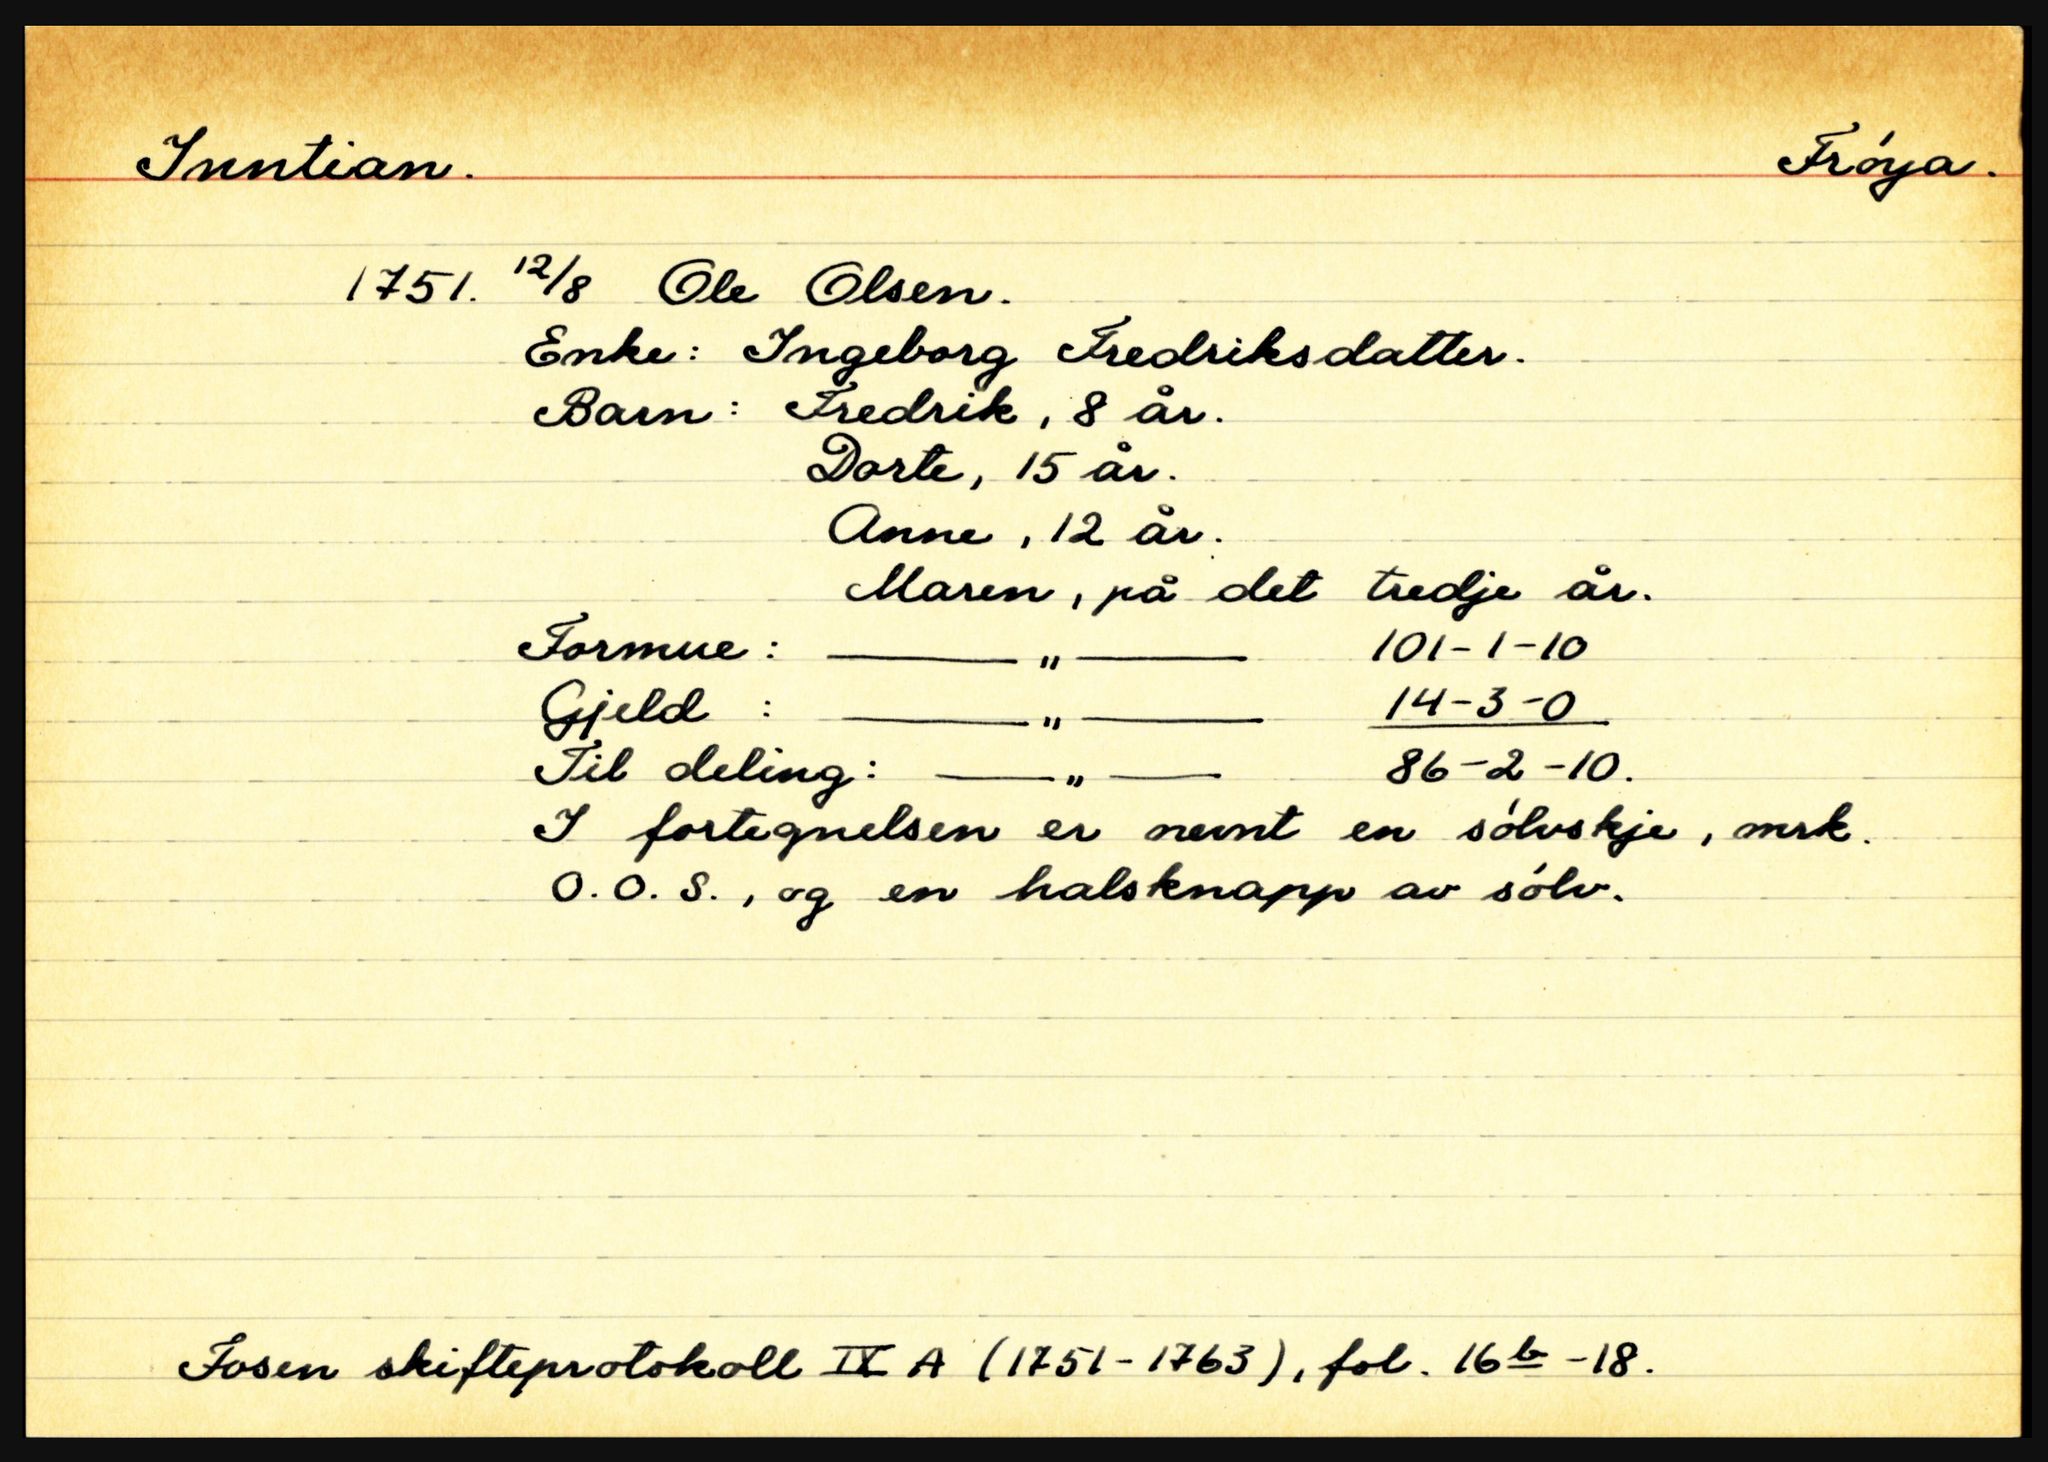 Inntian. Frøya.
1751. 12/8 Ole Olsen.
Enke: Ingeborg Fredriksdatter.
Barn: Fredrik, 8 år.
Dorte, 15 år.
Anne, 12 år.
Maren, på det tredje år.
Formue: — " — 101-1-10
Gjeld : — " — 14-3-0
Til deling: — " — 86-2-10.
I fortegnelsen er nevnt en sølvskje, mrk.
O.O.S., og en halsknapp av sølv.
Fosen skifteprotokoll IX A (1751-1763), fol. 16b-18.